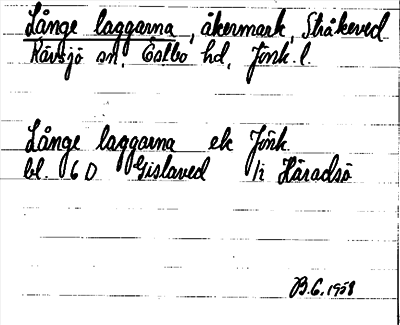 Långe laggarna, åkermark, Stråkeved
Kävsjö sn, Östbo hd, Jönk. l.
Långe laggarna ek Jönk.
bl. 6 D Gislaved 1:2 Häradsö
B.G. 1958